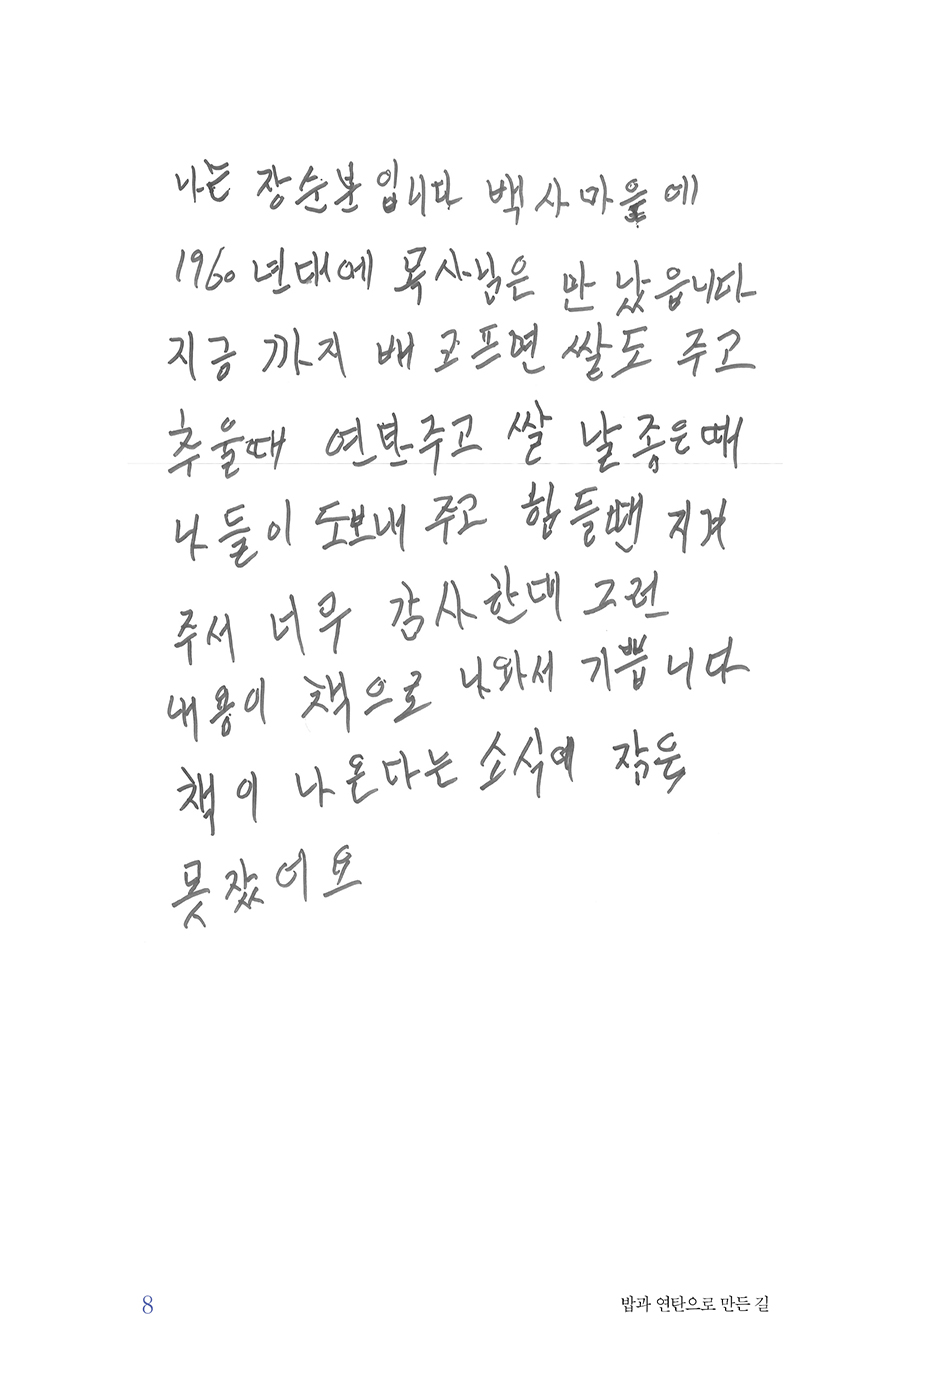 나는 장순분입니다 백사마을에
1960년대에 목사님은 만났읍니다
지금 까지 배코프면 쌀도 주고
추울때 연탄주고 쌀 날좋은때
나들이도보내주고 힘들땐 지켜
주서 너무 감사한데 그런
내용이 책으로 나와서 기쁩니다
책이 나온다는 소식에 잠을
못잤어요
8
밥과 연탄으로 만든 길